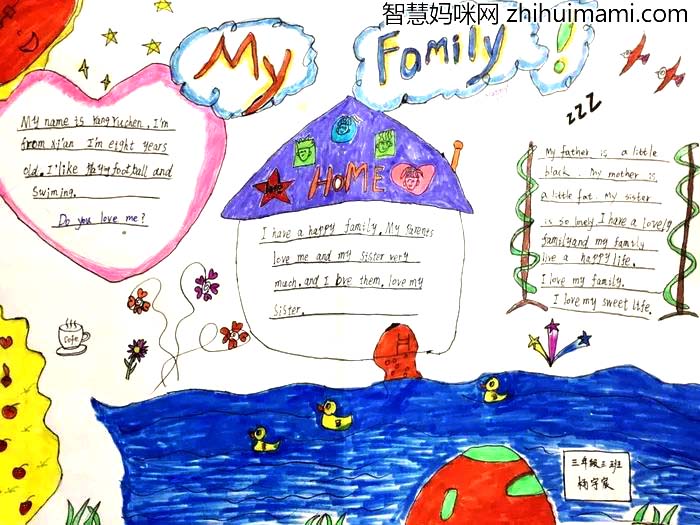 智慧妈咪网 zhihuimami.com
My Family!
ZZZ
My name is Yang Yuchen, I'm
from Xi'an I'm eight years
old. I'like football and
Swiming.
Do you love me?
love
HOME
I have a happy family. My Parents
love me and my Sister very
much. and I love them. love my
Sister.
My father is a little
black. My mother is
a little fat. My sister
is so lovely I have a lovely
familyand my family
live a happy life.
I love my family.
I love my sweet life.
三年级三班
杨宇宸